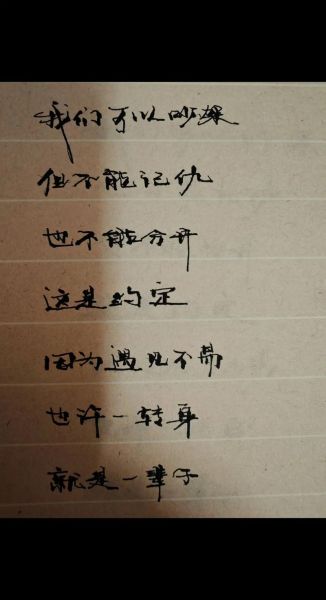 我们可以吵架
但不能记仇
也不能分开
这是约定
因为遇见不易
也许一转身
就是一辈子